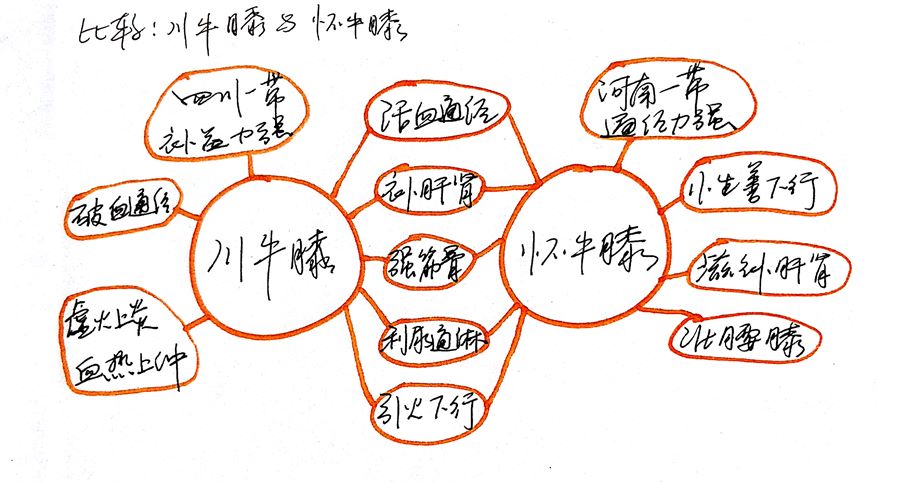 比较：川牛膝与怀牛膝
四川一带
补益力强
破血通经
虚火上炎
血热上冲
川牛膝
活血通经
补肝肾
强筋骨
利尿通淋
引火下行
怀牛膝
河南一带
通经力强
性善下行
滋补肝肾
壮腰膝